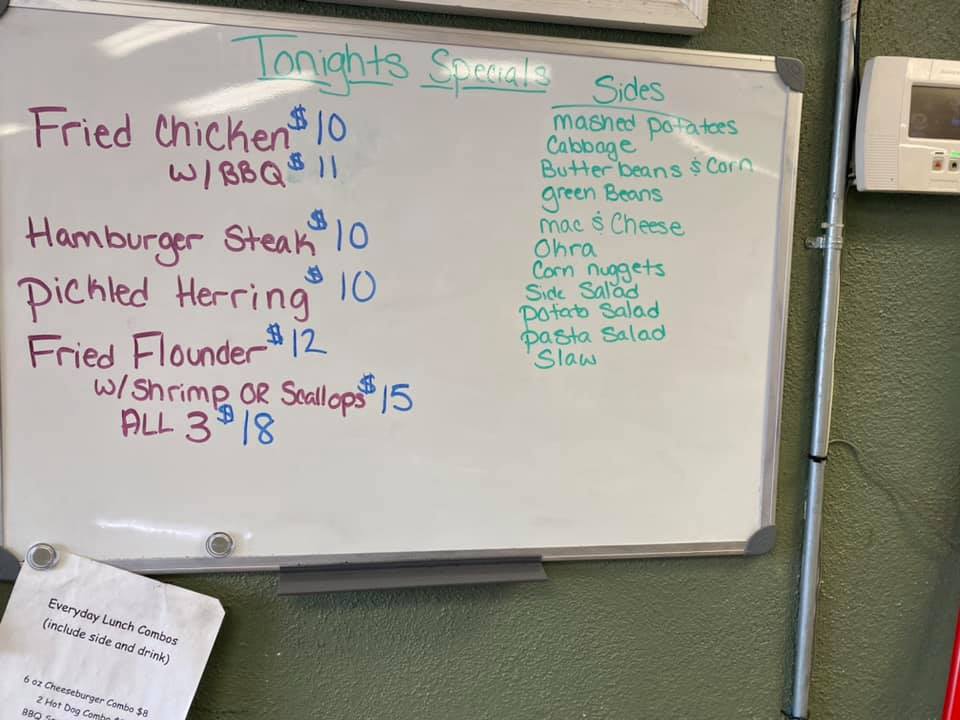 Tonights Specials
Fried Chicken $10
W/BBQ $11
Hamburger Steak $10
Pickled Herring $10
Fried Flounder $12
W/Shrimp OR Scallops $15
ALL 3 $18
Sides
mashed potatoes
Cabbage
Butter beans & Corn
green Beans
mac & Cheese
Okra
Corn nuggets
Side Salad
potato Salad
pasta Salad
Slaw
Everyday Lunch Combos
(include side and drink)
6 oz Cheeseburger Combo $8
2 Hot Dog Combo
BBQ